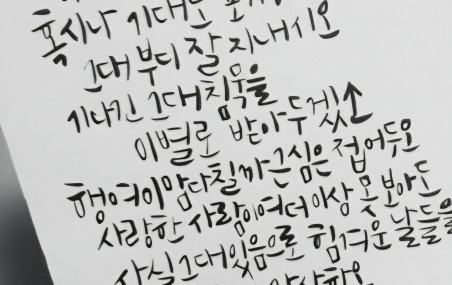 혹시나 기대도
그대 부디 잘 지내시오
기나긴 그대 침묵을
이별로 받아두겠소
행여 이 맘 다칠까 근심은 접어두오
사랑한 사람이여 더 이상 못보아도
사실 그대 있음으로 힘겨운 날들을